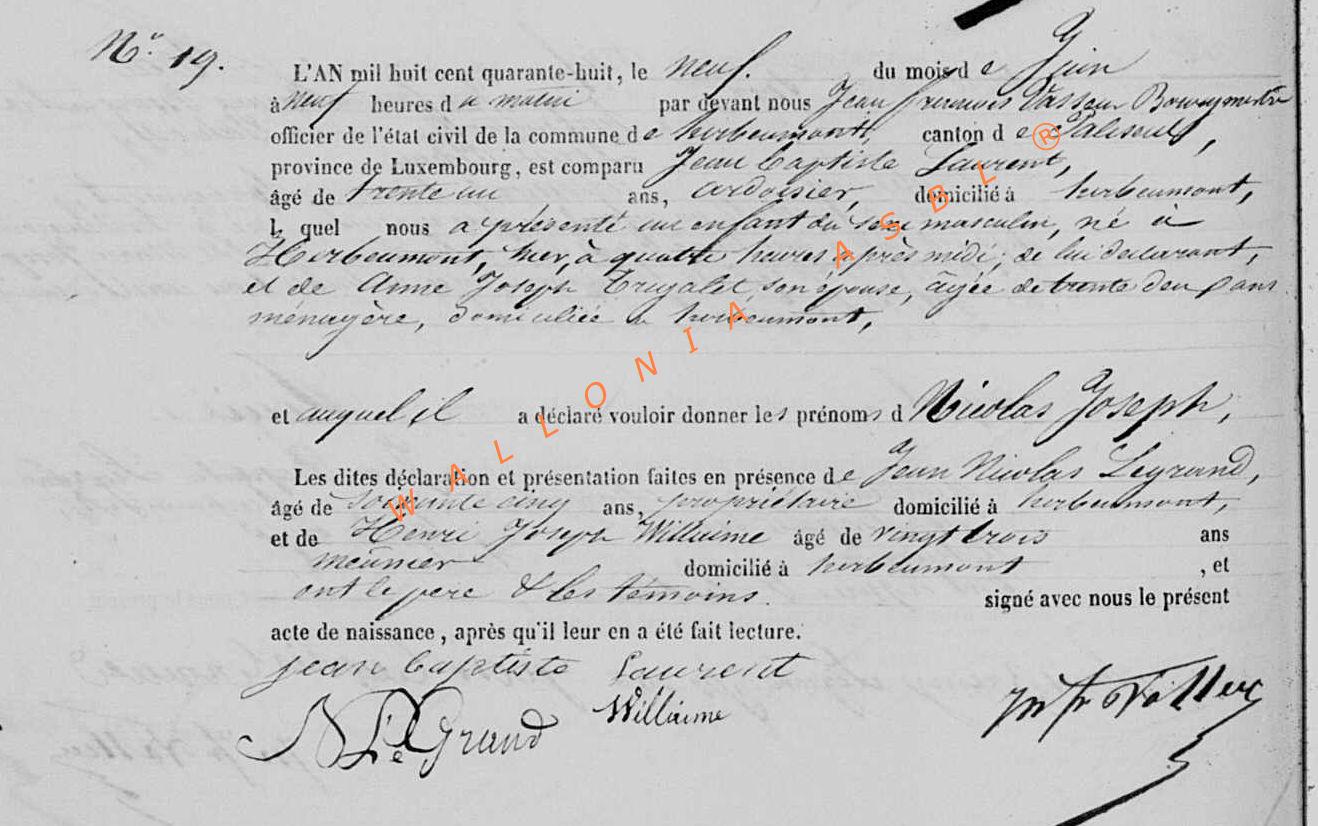 N° 19.
L'AN mil huit cent quarante-huit, le neuf. du mois de Juin
à neuf heures du matin par devant nous Jean François Vasseur Bourgmestre
officier de l'état civil de la commune de herbeumont, canton de Paliseul,
province de Luxembourg, est comparu Jean Baptiste Laurent,
âgé de trente un ans, ardoisier, domicilié à herbeumont,
l quel nous a présenté un enfant du sexe masculin, né à
Herbeumont, hier, à quatre heures après midi, de lui déclarant,
et de Anne Joseph son épouse, âgée de trente deux ans
ménagère, domiciliée à herbeumont,
et auquel il a déclaré vouloir donner les prénoms d Nicolas Joseph,
Les dites déclaration et présentation faites en présence de Jean Nicolas Legrand,
âgé de cinq ans, propriétaire domicilié à herbeumont,
et de Henri Joseph Williéme âgé de vingt trois ans
meunier domicilié à herbeumont, et
ont le pere & les témoins. signé avec nous le présent
acte de naissance, après qu'il leur en a été fait lecture.
jean baptiste Laurent
Williéme
N LeGrand
WALLONIA ASBL ®